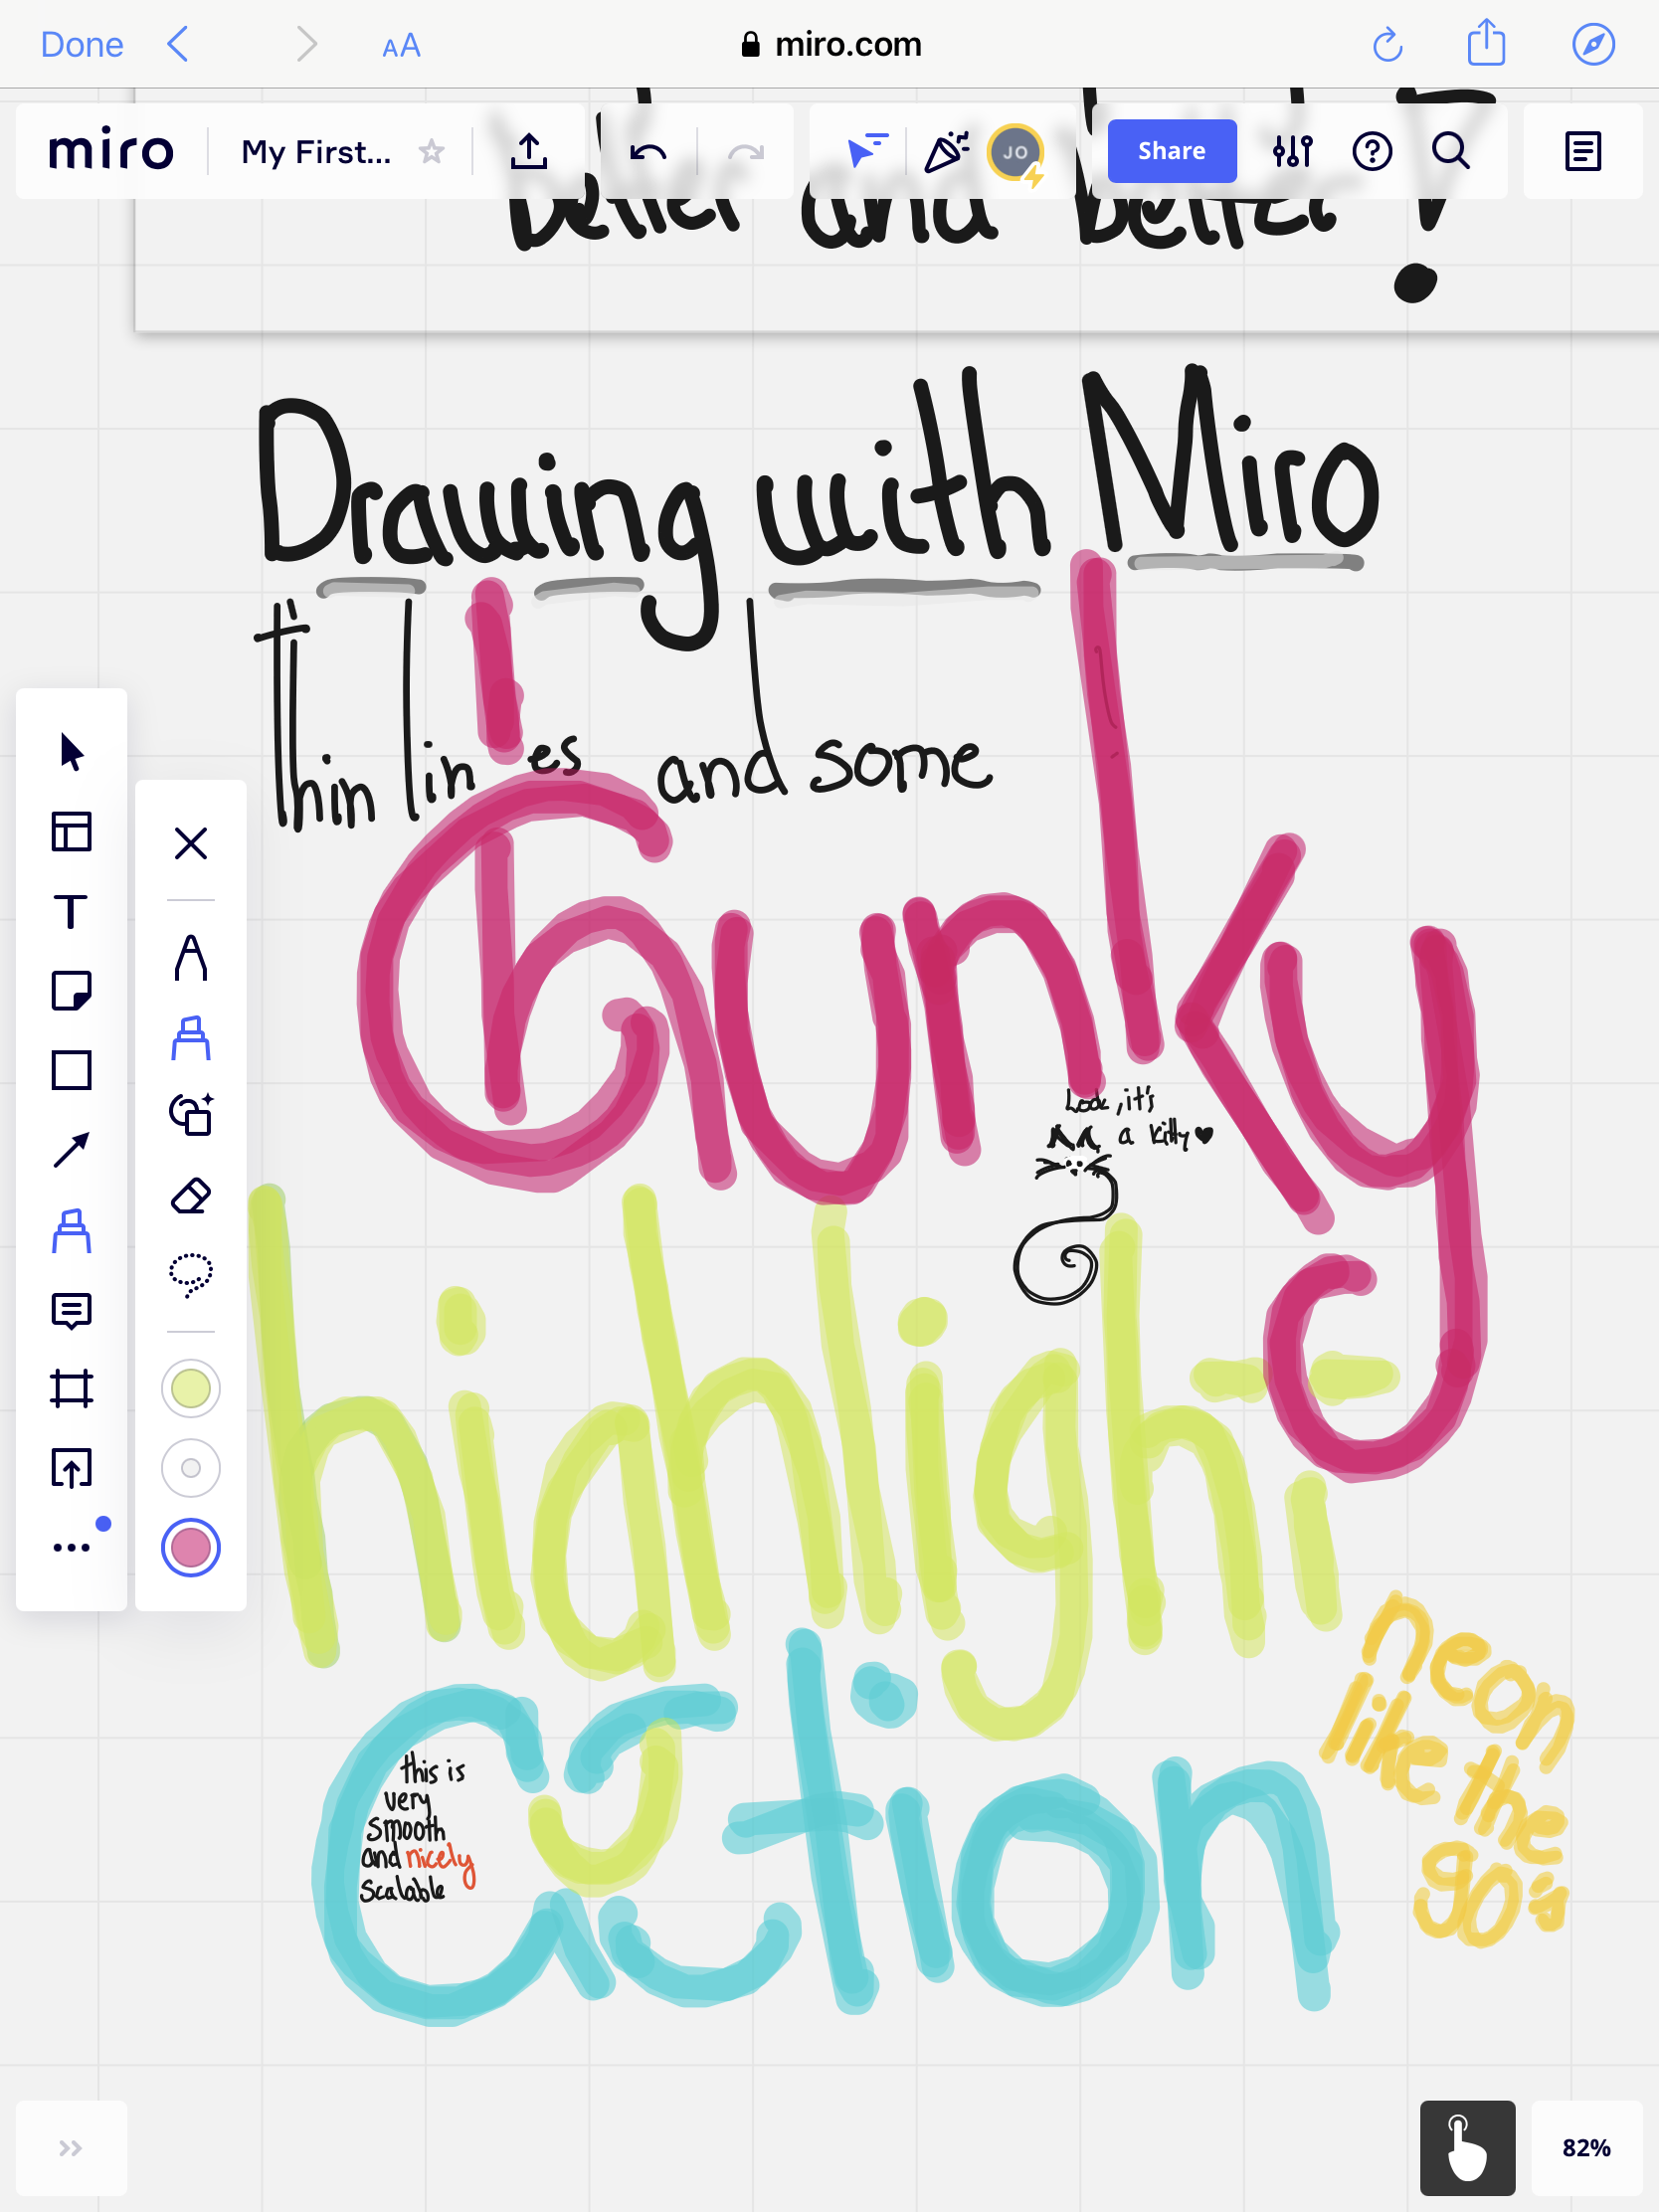 Done
AA
miro.com
miro
My First...
JO
Share
better and better!
Drawing with Miro
thin lines and some
Chunky
Look, it's
a kitty
highlight
action
this is
very
smooth
and nicely
scalable
neon
like the
80's
82%